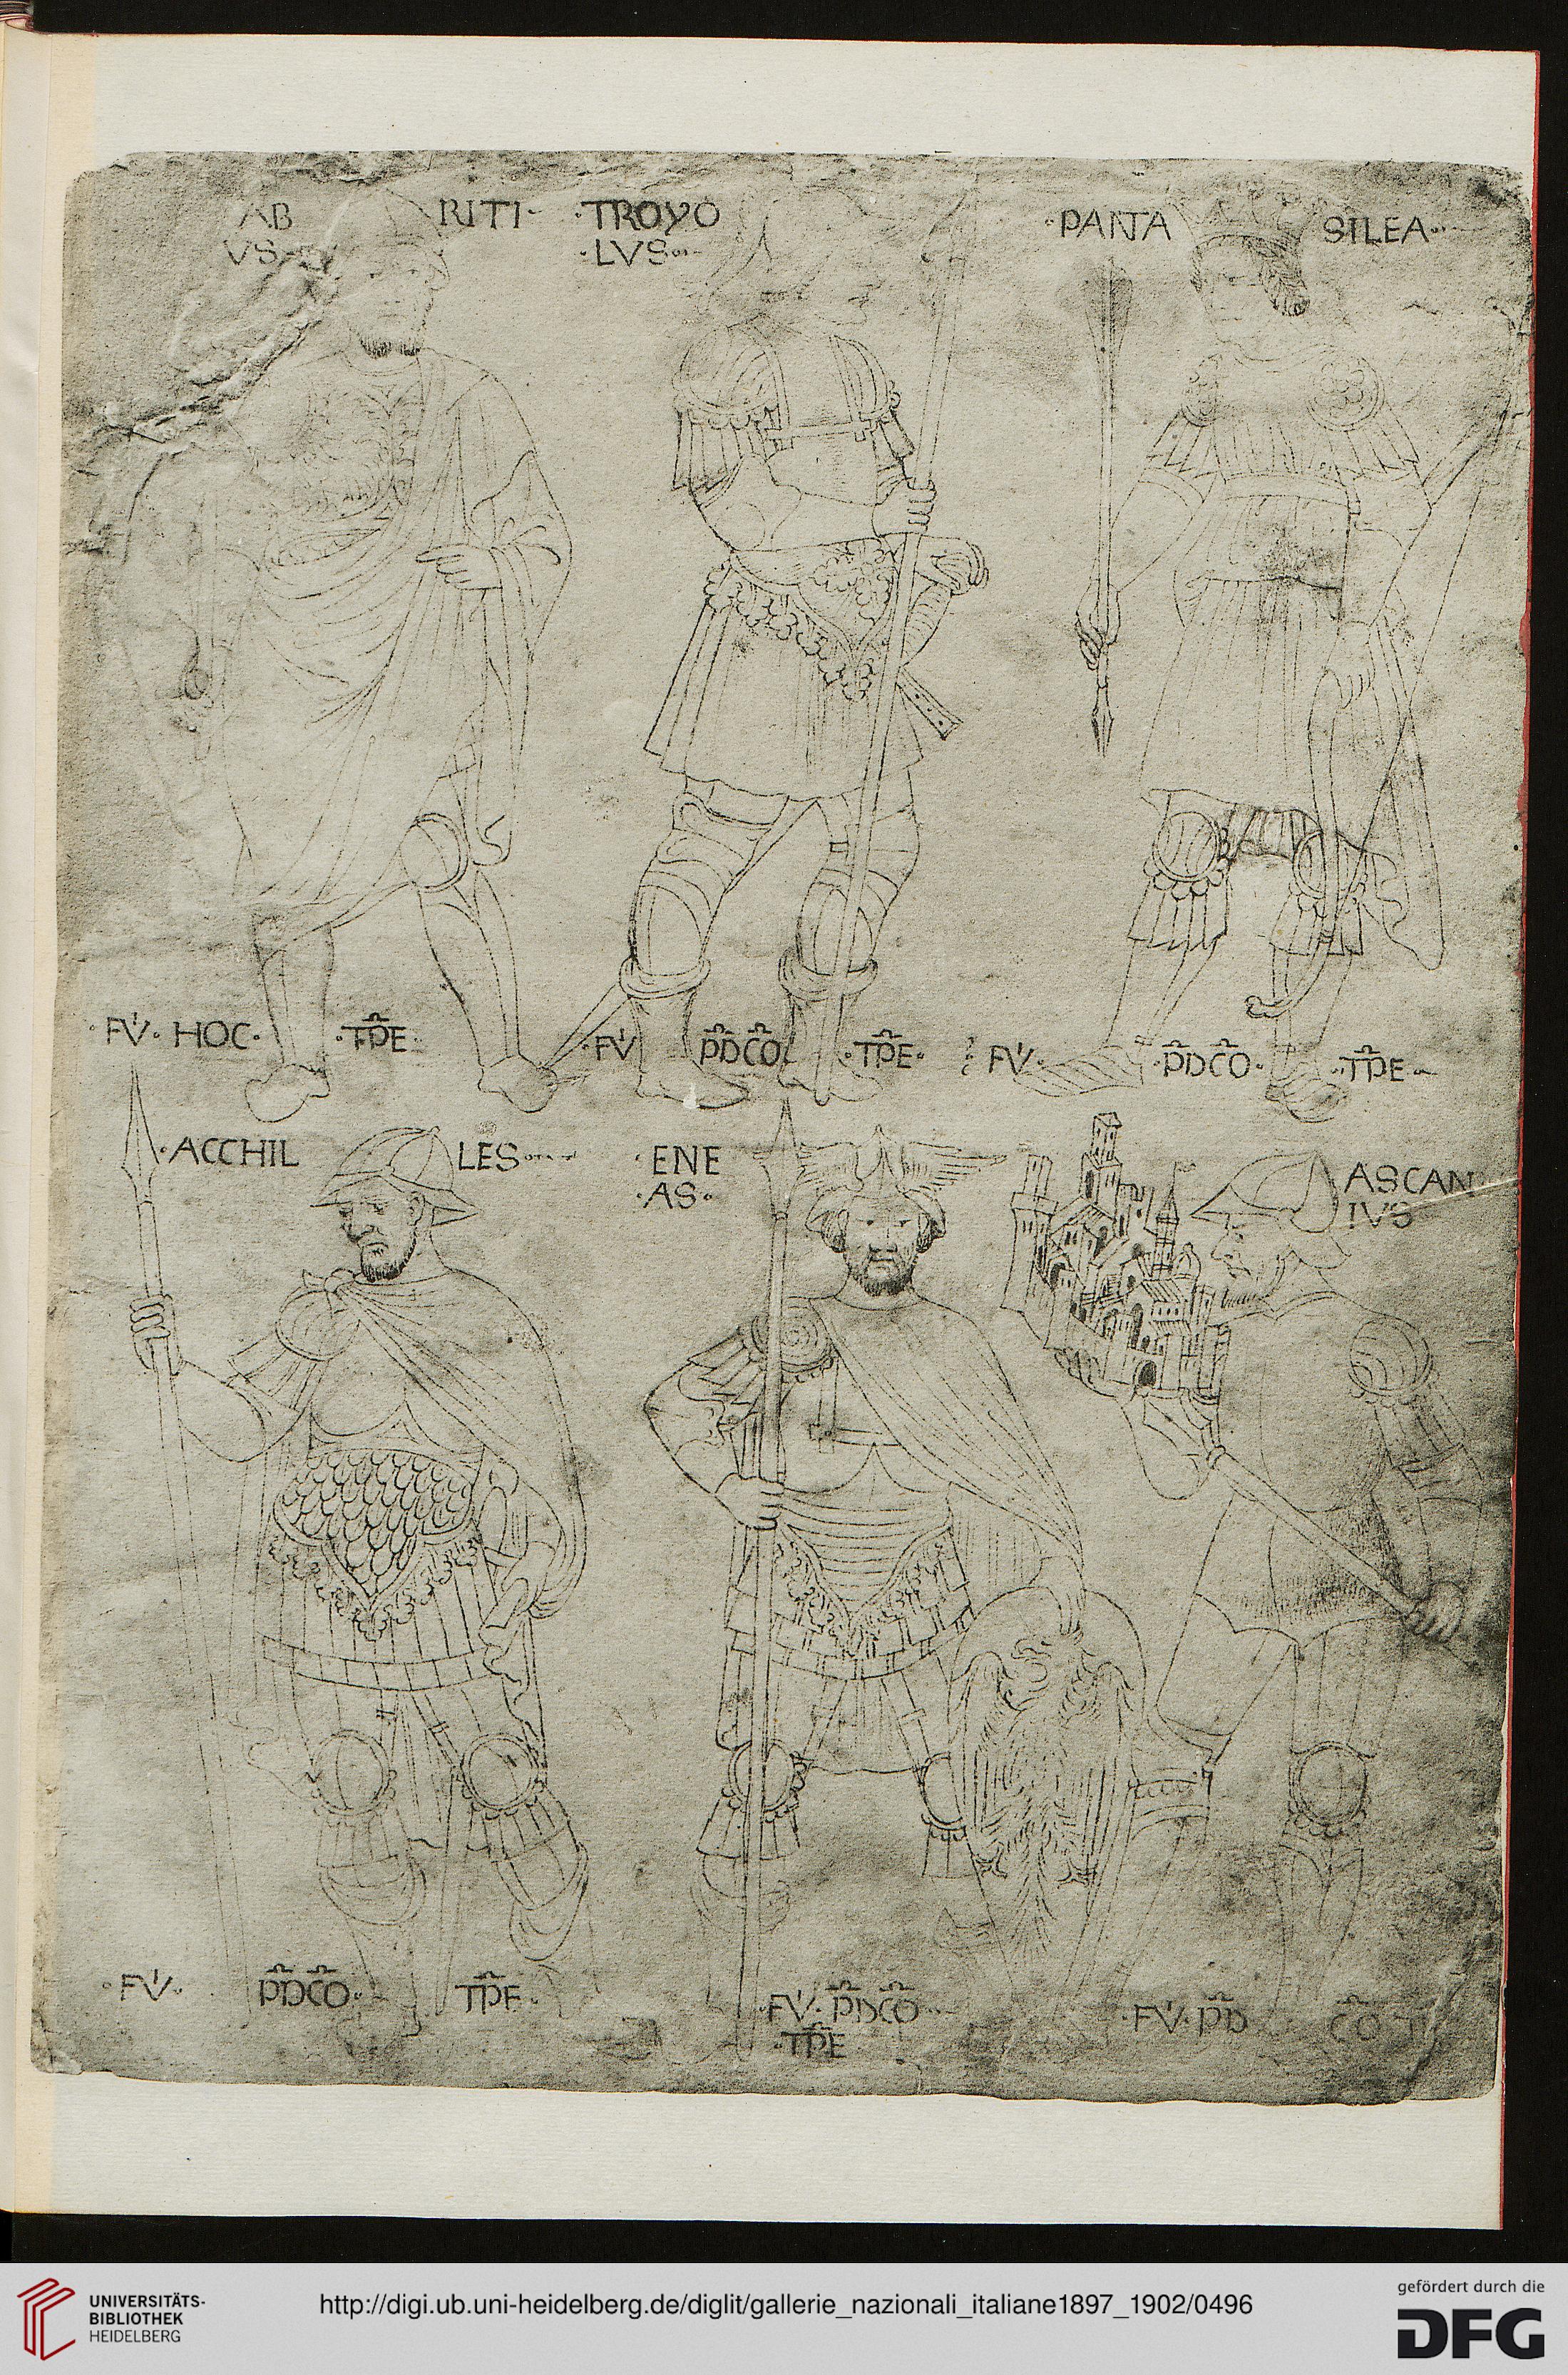 AB RITI
VS
·TROYO
·LVS·
·PANTA SILEA·
·FV'· HOC· ·TP̄E·
·FV' P̄DC̄O· ·TP̄E·
FV'· ·P̄DC̄O· ·TP̄E·
·ACCHIL LES·
·ENE
·AS·
ASCAN
IVS
·FV'· P̄DC̄O· TP̄E·
·FV'· P̄DC̄O·
·TP̄E
·FV'· P̄D C̄O T
UNIVERSITÄTS-
BIBLIOTHEK
HEIDELBERG
http://digi.ub.uni-heidelberg.de/diglit/gallerie_nazionali_italiane1897_1902/0496
gefördert durch die
DFG